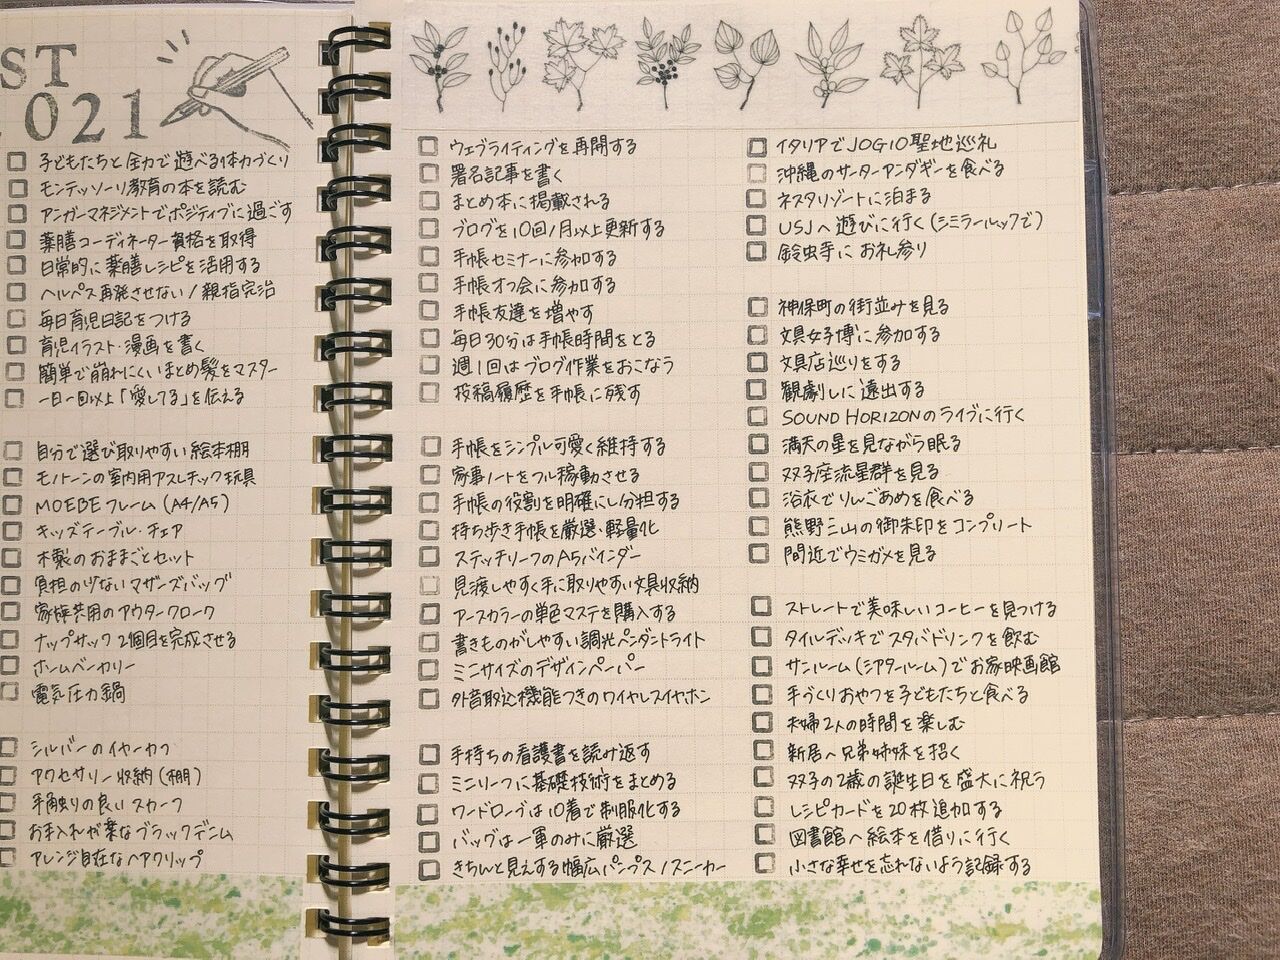 ST
2021
子どもたちと全力で遊べる体力づくり
モンテッソーリ教育の本を読む
アンガーマネジメントでポジティブに過ごす
薬膳コーディネーター資格を取得
日常的に薬膳レシピを活用する
ヘルペス再発させない/親指完治
毎日育児日記をつける
育児イラスト・漫画を書く
簡単で崩れにくいまとめ髪をマスター
一日一回以上「愛してる」を伝える
自分で選び取りやすい絵本棚
モノトーンの室内用アスレチック玩具
MOEBEフレーム(A4/A5)
キッズテーブル・チェア
木製のおままごとセット
負担の少ないマザーズバッグ
家族共用のアウタークローク
ナップサック2個目を完成させる
ホームベーカリー
電気圧力鍋
シルバーのイヤーカフ
アクセサリー収納(棚)
手触りの良いスカーフ
お手入れが楽なブラックデニム
アレンジ自在なヘアクリップ
ウェブライティングを再開する
署名記事を書く
まとめ本に掲載される
ブログを10回/月以上更新する
手帳セミナーに参加する
手帳オフ会に参加する
手帳友達を増やす
毎日30分は手帳時間をとる
週1回はブログ作業をおこなう
投稿履歴を手帳に残す
手帳をシンプル可愛く維持する
家事ノートをフル稼動させる
手帳の役割を明確にし分担する
持ち歩き手帳を厳選、軽量化
ステッチリーフのA5バインダー
見渡しやすく手に取りやすい文具収納
アースカラーの単色マステを購入する
書きものがしやすい調光ペンダントライト
ミニサイズのデザインペーパー
外音取込機能つきのワイヤレスイヤホン
手持ちの看護書を読み返す
ミニリーフに基礎技術をまとめる
ワードローブは10着で制服化する
バッグは一軍のみに厳選
きちんと見えする幅広パンプス/スニーカー
イタリアでJOJO聖地巡礼
沖縄のサーターアンダギーを食べる
ネスタリゾートに泊まる
USJへ遊びに行く(シミラールックで)
鈴虫寺にお礼参り
神保町の街並みを見る
文具女子博に参加する
文具店巡りをする
観劇しに遠出する
SOUND HORIZONのライブに行く
満天の星を見ながら眠る
双子座流星群を見る
浴衣でりんごあめを食べる
熊野三山の御朱印をコンプリート
間近でウミガメを見る
ストレートで美味しいコーヒーを見つける
タイルデッキでスタバドリンクを飲む
サンルーム(シアタールーム)でお家映画館
手づくりおやつを子どもたちと食べる
夫婦2人の時間を楽しむ
新居へ兄弟姉妹を招く
双子の2歳の誕生日を盛大に祝う
レシピカードを20枚追加する
図書館へ絵本を借りに行く
小さな幸せを忘れないよう記録する